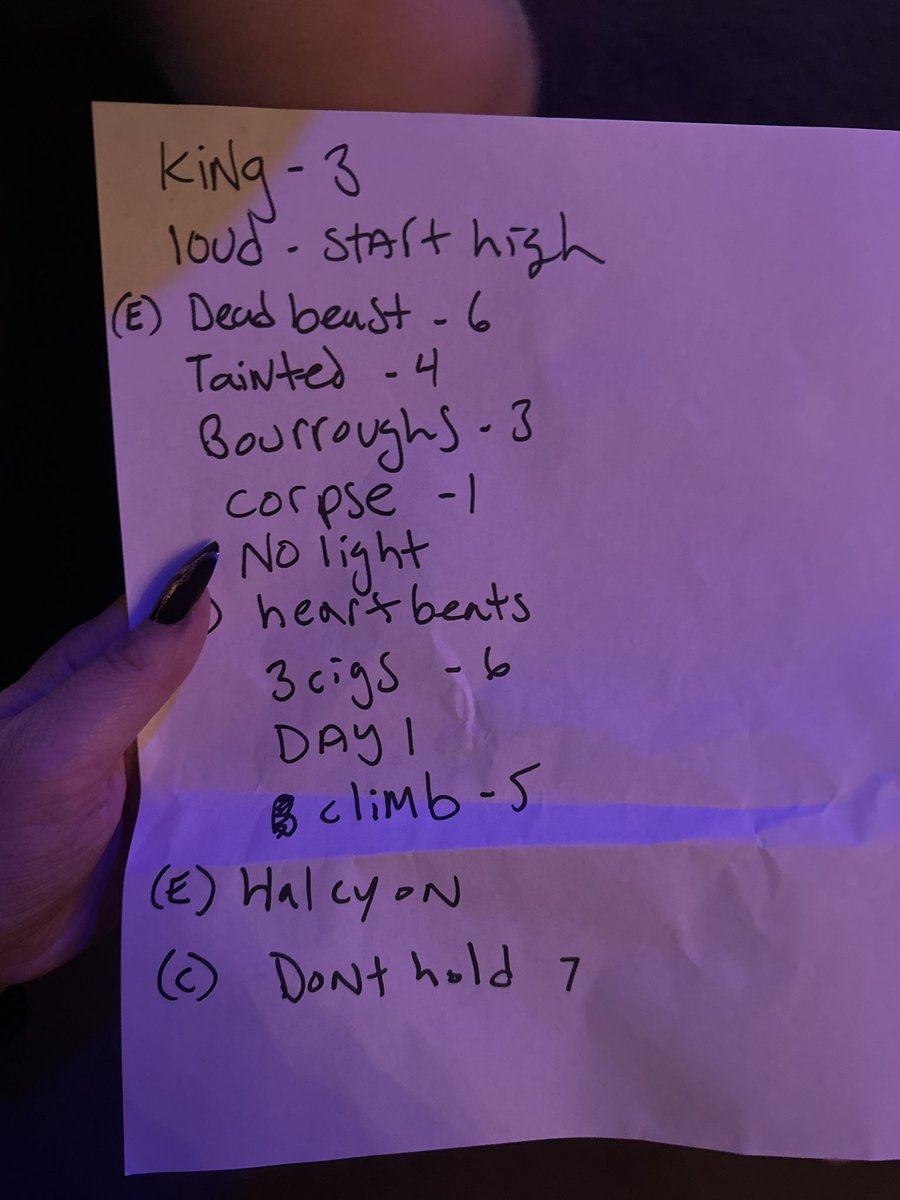 King - 3
loud - start high
(E) Dead beast - 6
Tainted - 4
Bourroughs - 3
corpse - 1
No light
) heartbeats
3 cigs - 6
DAY 1
climb - 5
(E) Halcyon
(C) Dont hold 7